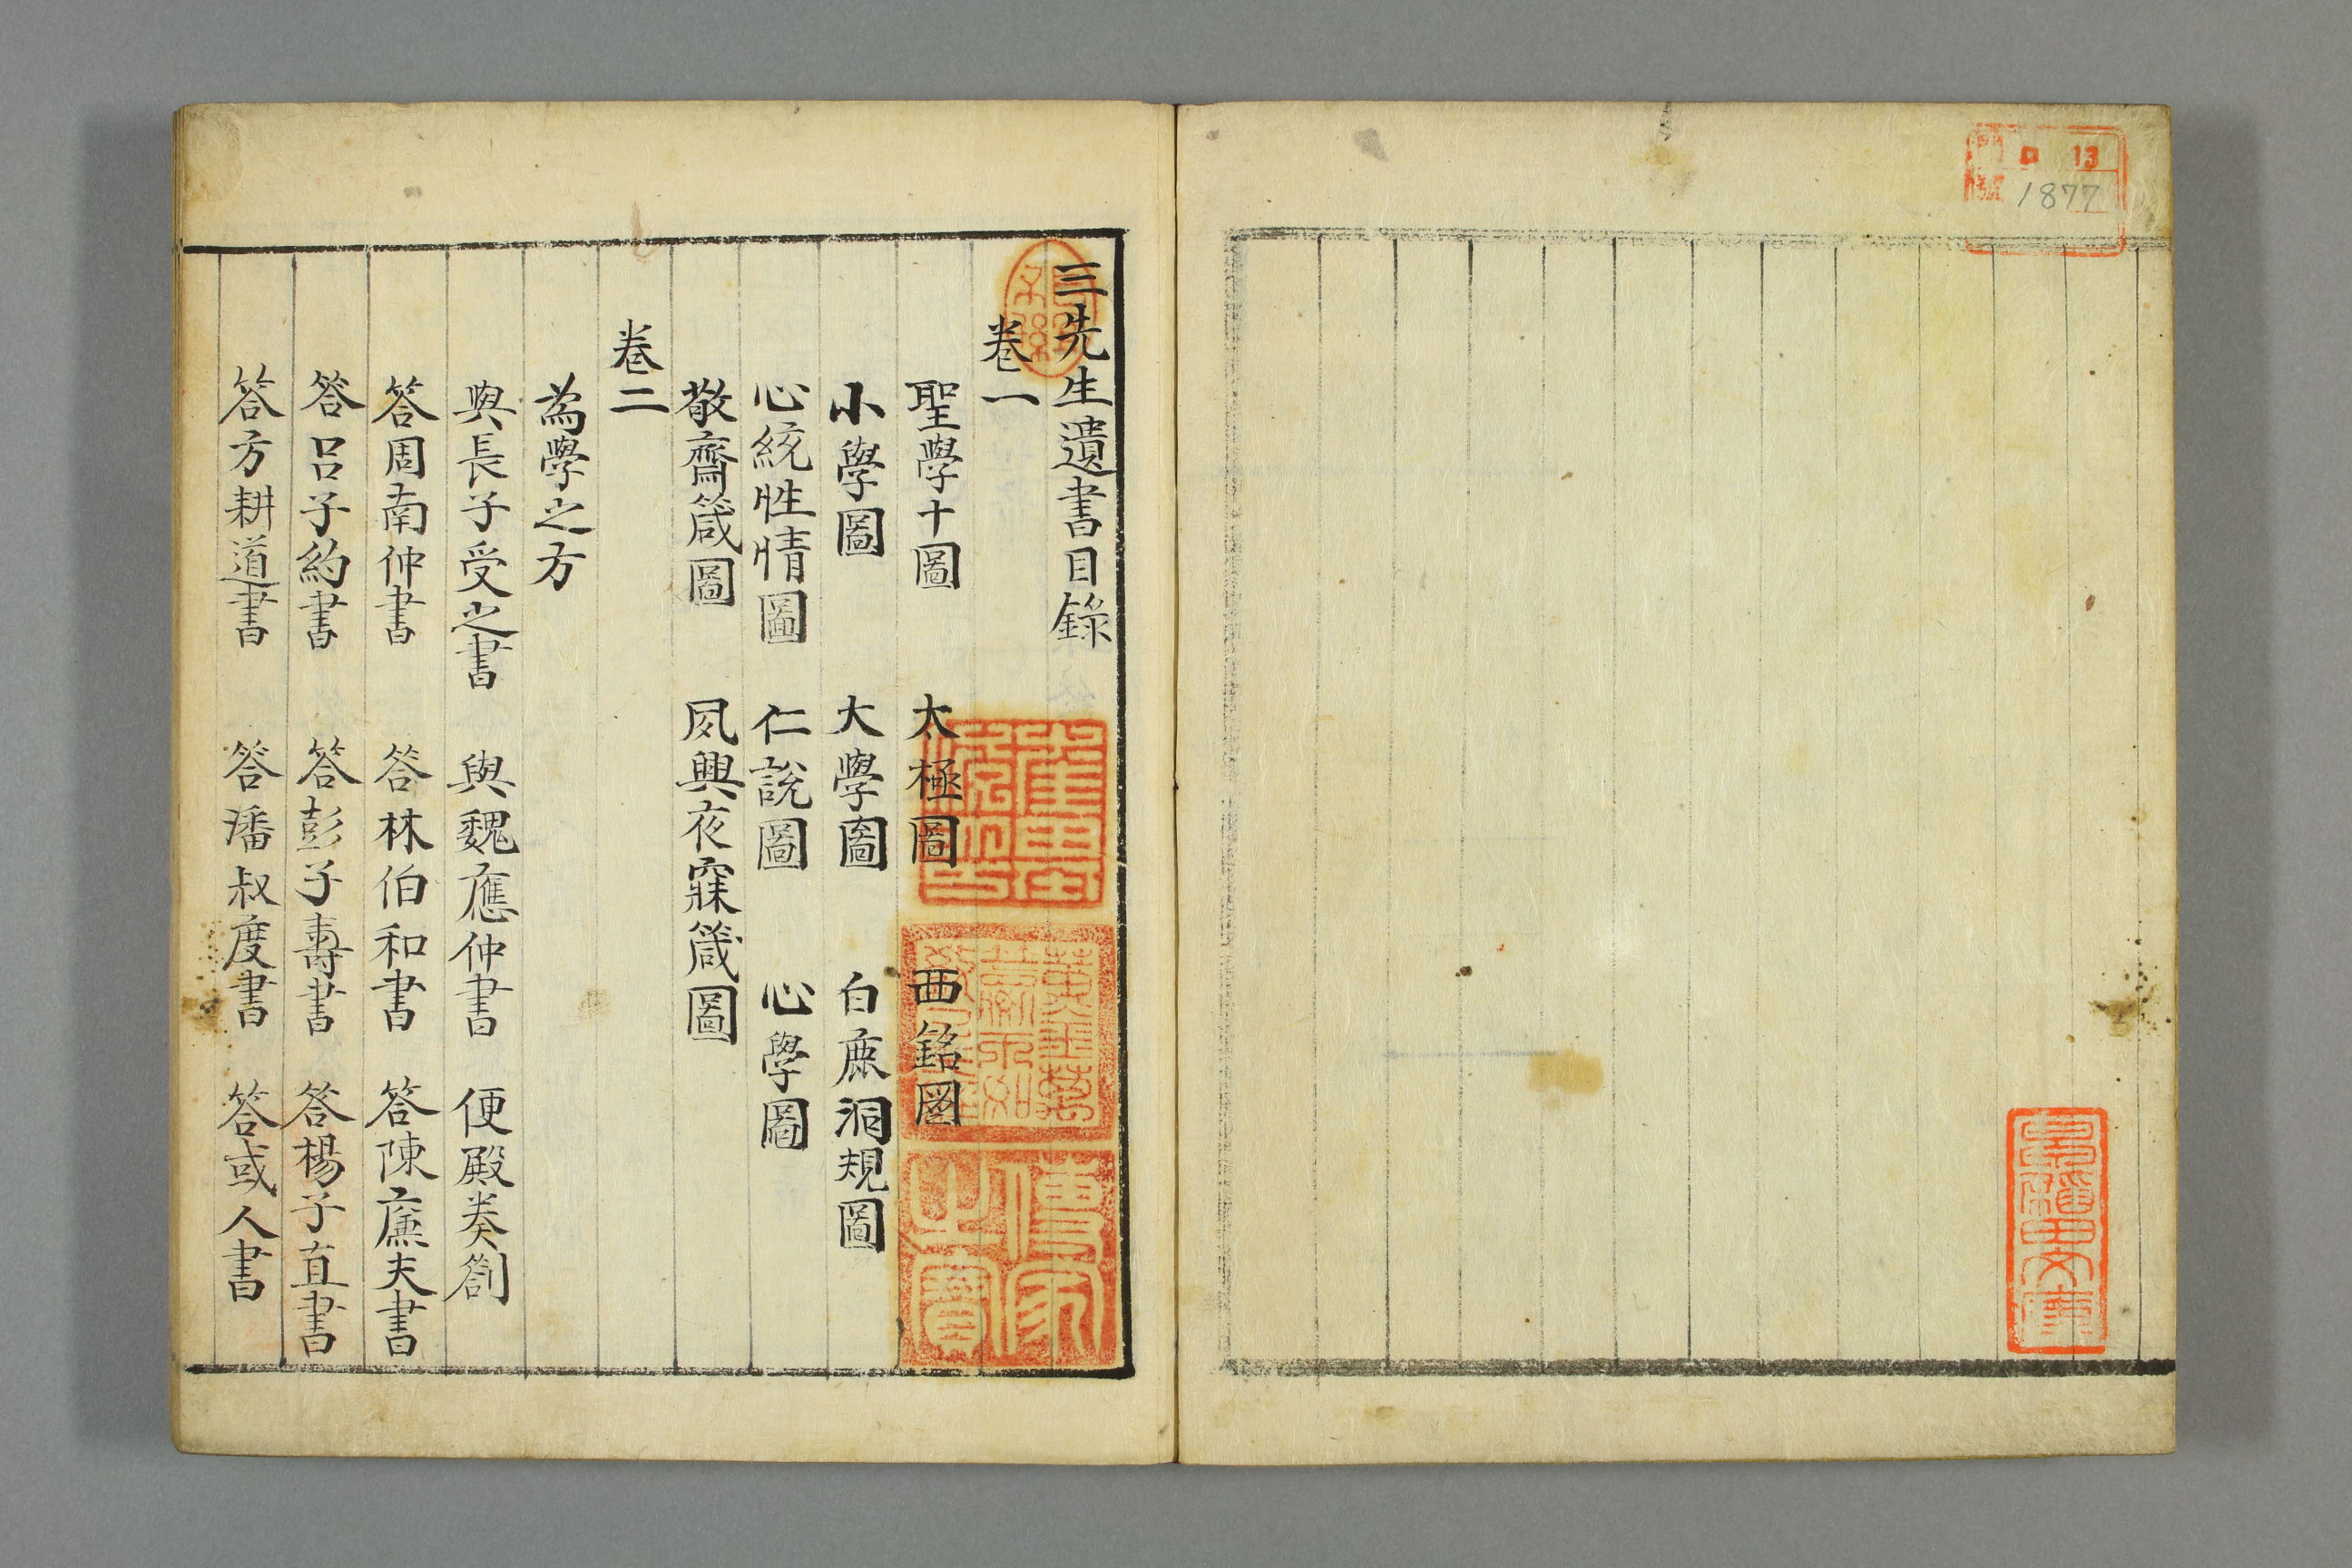 門 ロ 13
號 1877
早稲田文庫
三先生遺書目錄
卷一
聖學十圖 太極圖 西銘圖
小學圖 大學圖 白鹿洞規圖
心統性情圖 仁說圖 心學圖
敬齋箴圖 夙興夜寐箴圖
卷二
為學之方
與長子受之書 與魏應仲書 便殿奏劄
答周南仲書 答林伯和書 答陳廉夫書
答呂子約書 答彭子壽書 答楊子直書
答方耕道書 答潘叔度書 答或人書
傳家
之寶